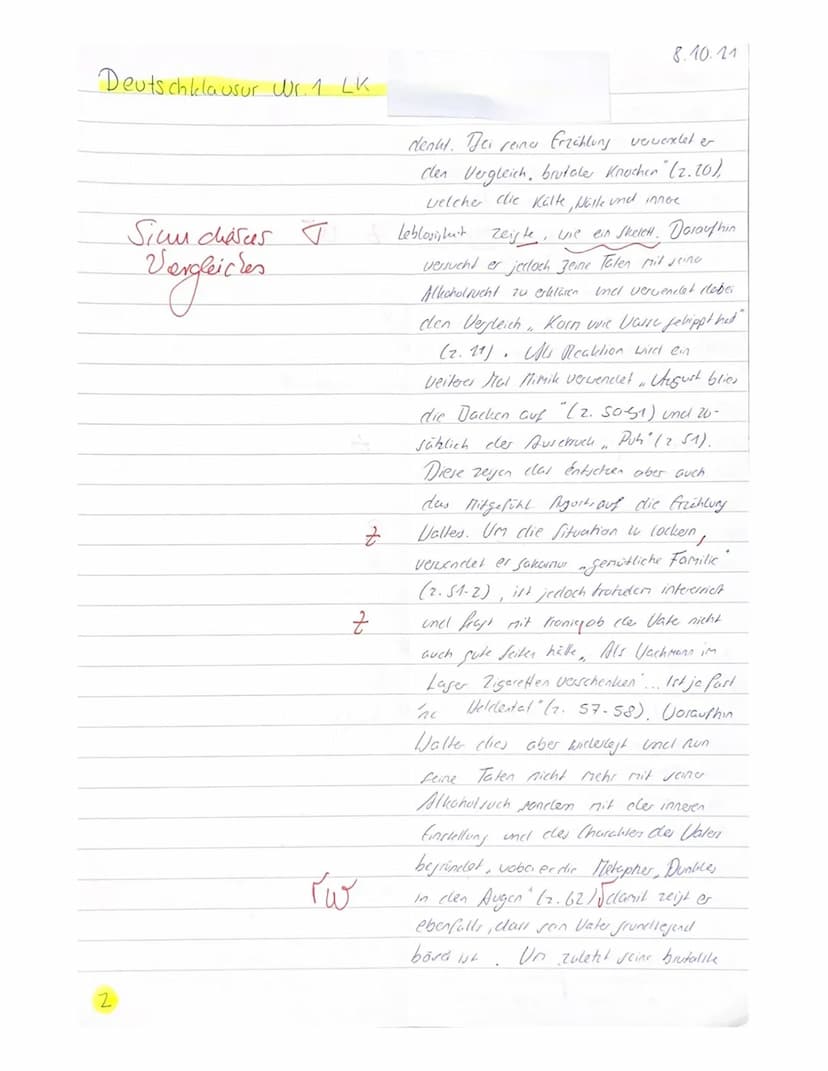 8.10.21
Deutschklausur Nr. 1 LK
denkt. Bei seiner Erzählung verwendet er
den Vergleich „brutaler Knochen" (z. 20),
welcher die Kälte, Härte und innere
Sinn dieses T
Vergleiches
Leblosigkeit zeigte, wie ein Skelett. Daraufhin
versucht er jedoch seine Taten mit seiner
Alkoholsucht zu erklären und verwendet dabei
den Vergleich „Korn wie Wasser gekippt hat"
(z. 21). Als Reaktion wird ein
weiteres Mal Mimik verwendet „August blies
die Backen auf" (z. 50-51) und zu-
sätzlich der Ausdruck „Puh" (z. 51).
Diese zeigen das Entsetzen aber auch
das Mitgefühl Augusts auf die Erzählung
Z
Walters. Um die Situation zu lockern,
verwendet er „gemütliche Familie"
(z. 51-2), ist jedoch trotzdem interessiert
Z
und fragt mit Ironie, ob der Vater nicht
auch gute Seiten hätte „Als Wachmann im
Lager Zigaretten verschenken"... Ist ja fast
'ne Heldentat" (z. 57-58). Woraufhin
Walter dies aber widerlegt und nun
seine Taten nicht mehr mit seiner
Alkoholsuch sondern mit der inneren
Einstellung und des Charakters des Vaters
begründet, wobei er die Metapher „Dunkles
ΓW
in den Augen" (z. 62) Γ damit zeigt er
ebenfalls, dass sein Vater grundlegend
böse ist. Um zuletzt seine brutalste
2